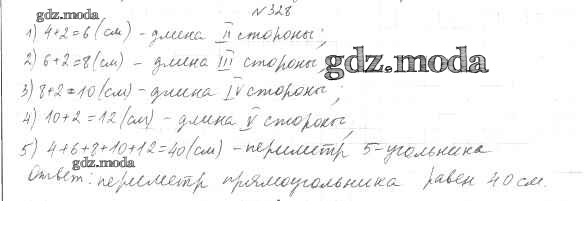 №328
gdz.moda
1) 4+2=6 (см) - длина II стороны;
2) 6+2=8 (см) - длина III стороны;
gdz.moda
3) 8+2=10 (см) - длина IV стороны;
4) 10+2=12 (см) - длина V стороны;
5) 4+6+8+10+12=40 (см) - периметр 5-угольника
gdz.moda
Ответ: периметр прямоугольника равен 40 см.